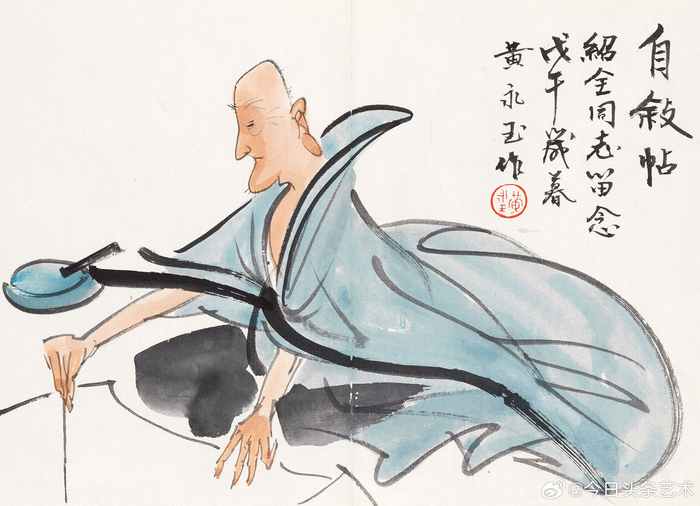 自敘帖
紹全同志留念
戊午歲暮
黃永玉作
黄永玉
@今日头条艺术